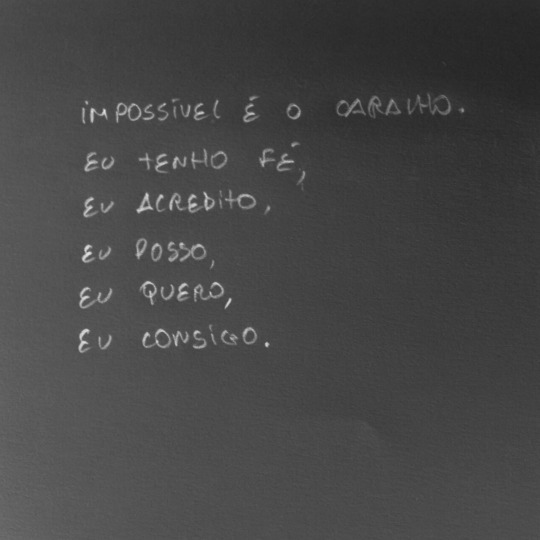 IMPOSSÍVEL É O CARALHO.
EU TENHO FÉ,
EU ACREDITO,
EU POSSO,
EU QUERO,
EU CONSIGO.